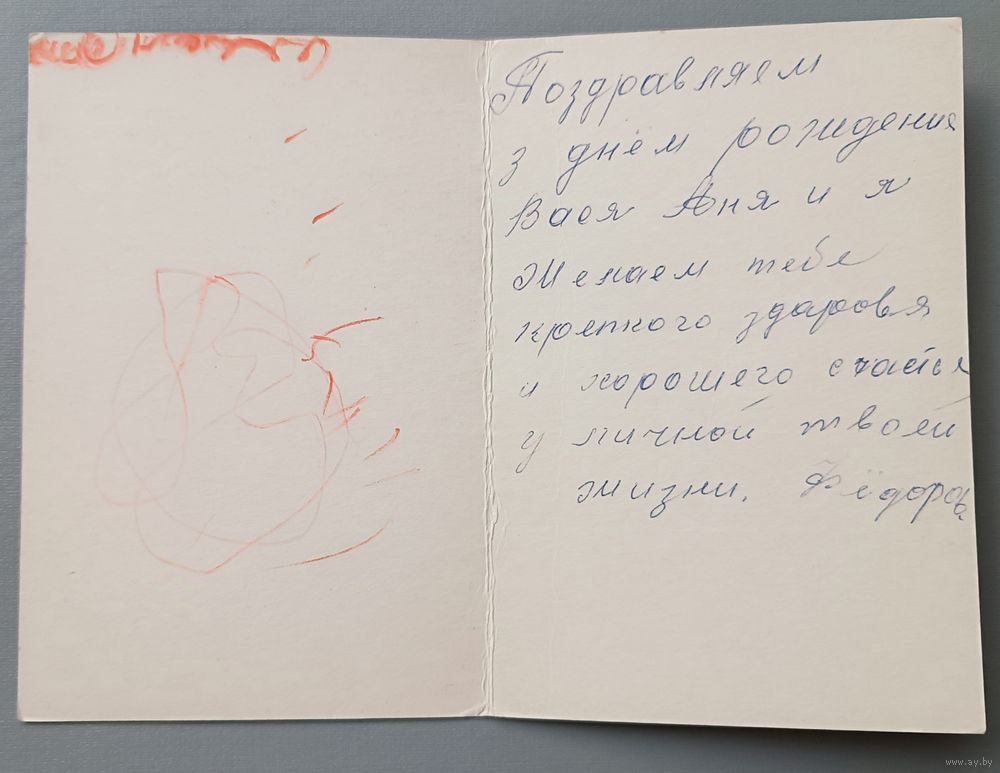 Поздравляем
з днём рождения
Вася Аня и я
Желаем тебе
крепкого здоровя
и хорошего счастья
у личной твоей
жизни. Фёдоров.
www.ay.by